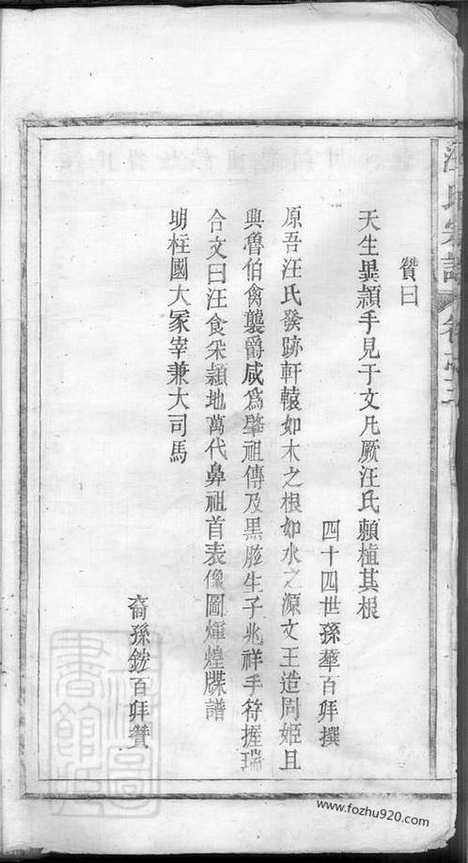 贊曰
天生異潁手見于文凡厥汪氏賴植其根
四十四世孫華百拜撰
原吾汪氏發跡軒轅如木之根如水之源文王造周姬旦
典魯伯禽襲爵咸爲肇祖傳及黑肱生子兆祥手符握瑞
合文曰汪食采潁地萬代鼻祖首表像圖煇煌牒譜
明柱國大冢宰兼大司馬
裔孫鋐百拜贊
汪氏宗譜
www.fozhu920.com